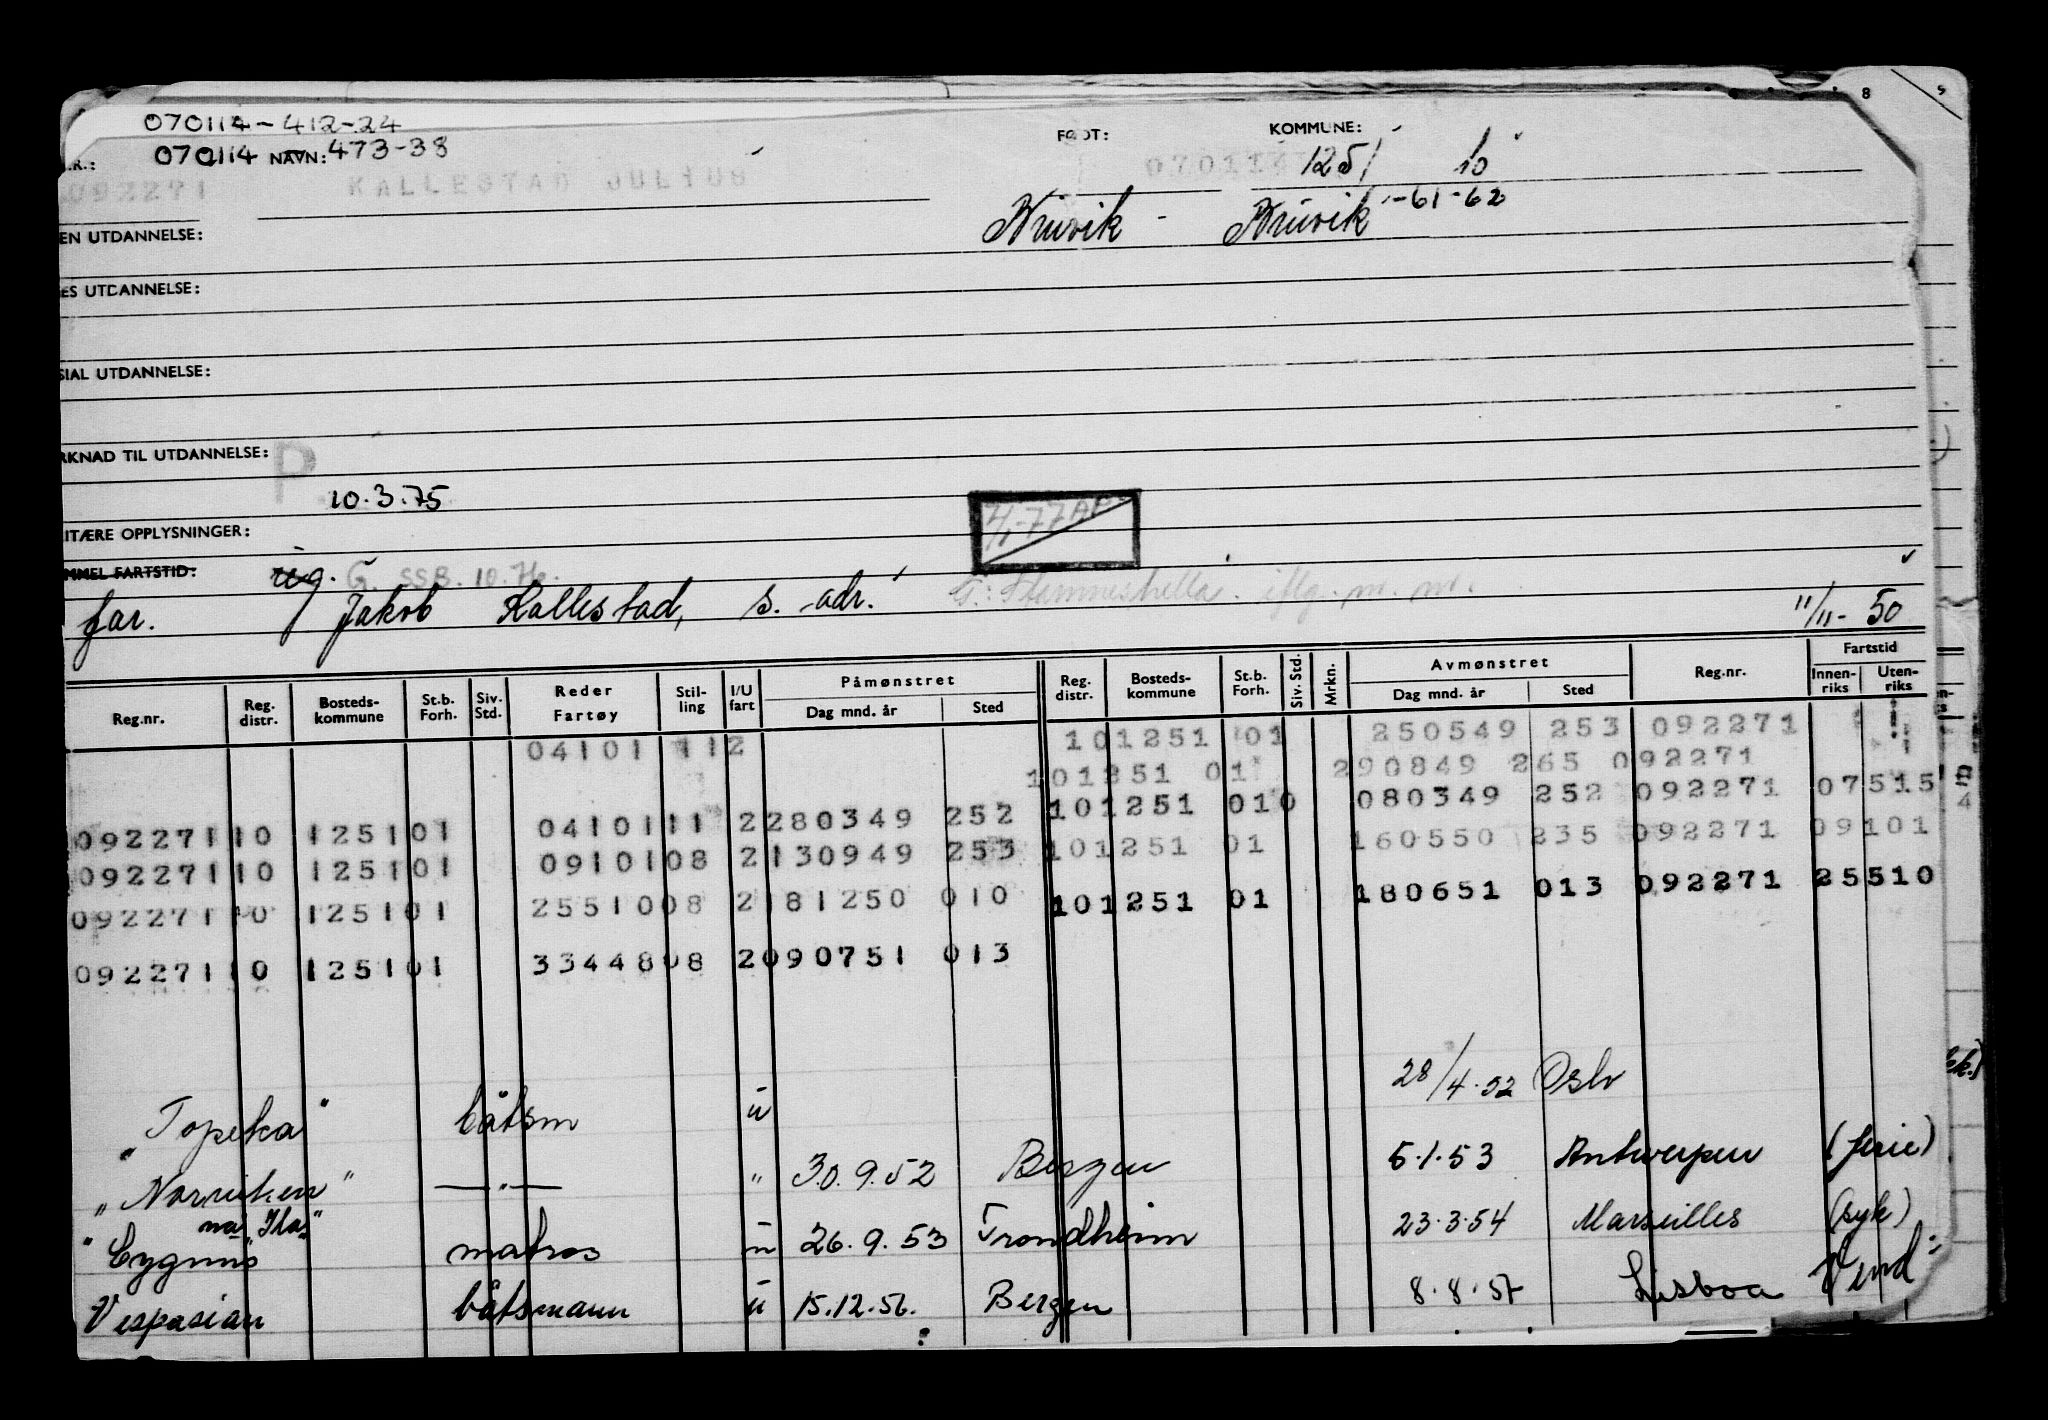 070114-412-24
070114 NAVN: 473-38 FØDT: KOMMUNE:
092271 KALLESTAD JULIUS 070114 1251 10
Bruvik - Bruvik -61-62
EN UTDANNELSE:
ES UTDANNELSE:
SIAL UTDANNELSE:
RKNAD TIL UTDANNELSE: P
10.3.75
ITÆRE OPPLYSNINGER:
MMEL FARTSTID: reg. G. SSB. 10.76.
far. Jakob Kallestad, s. adr. G: Stamneshella 11/11-50
Reg.nr. Reg. distr. Bosteds-kommune St.b. Forh. Siv. Std. Reder Fartøy Stil-ling I/U fart Påmønstret Dag mnd. år Sted Reg. distr. Bosteds-kommune St.b. Forh. Siv. Std. Mrkn. Avmønstret Dag mnd. år Sted Reg.nr. Fartstid Innen-riks Uten-riks
04101 112 101251 01 250549 253 092271
101251 01 290849 265 092271
09227110 125101 0410111 2280349 252 101251 010 080349 252 092271 07515
09227110 125101 0910108 2130949 253 101251 01 160550 235 092271 09101
09227110 125101 2551008 2181250 010 101251 01 180651 013 092271 25510
09227110 125101 3344808 2090751 013
"Topeka" båtsm u 28/4.52 Oslo
"Norviken" —"— " 30.9.52 Bergen 5.1.53 Antwerpen (ferie)
nå "Ila"
"Cygnus matros u 26.9.53 Trondheim 23.3.54 Marseilles (syk)
Vespasian båtsmann u 15.12.56. Bergen 8.8.57 Lisboa Vend